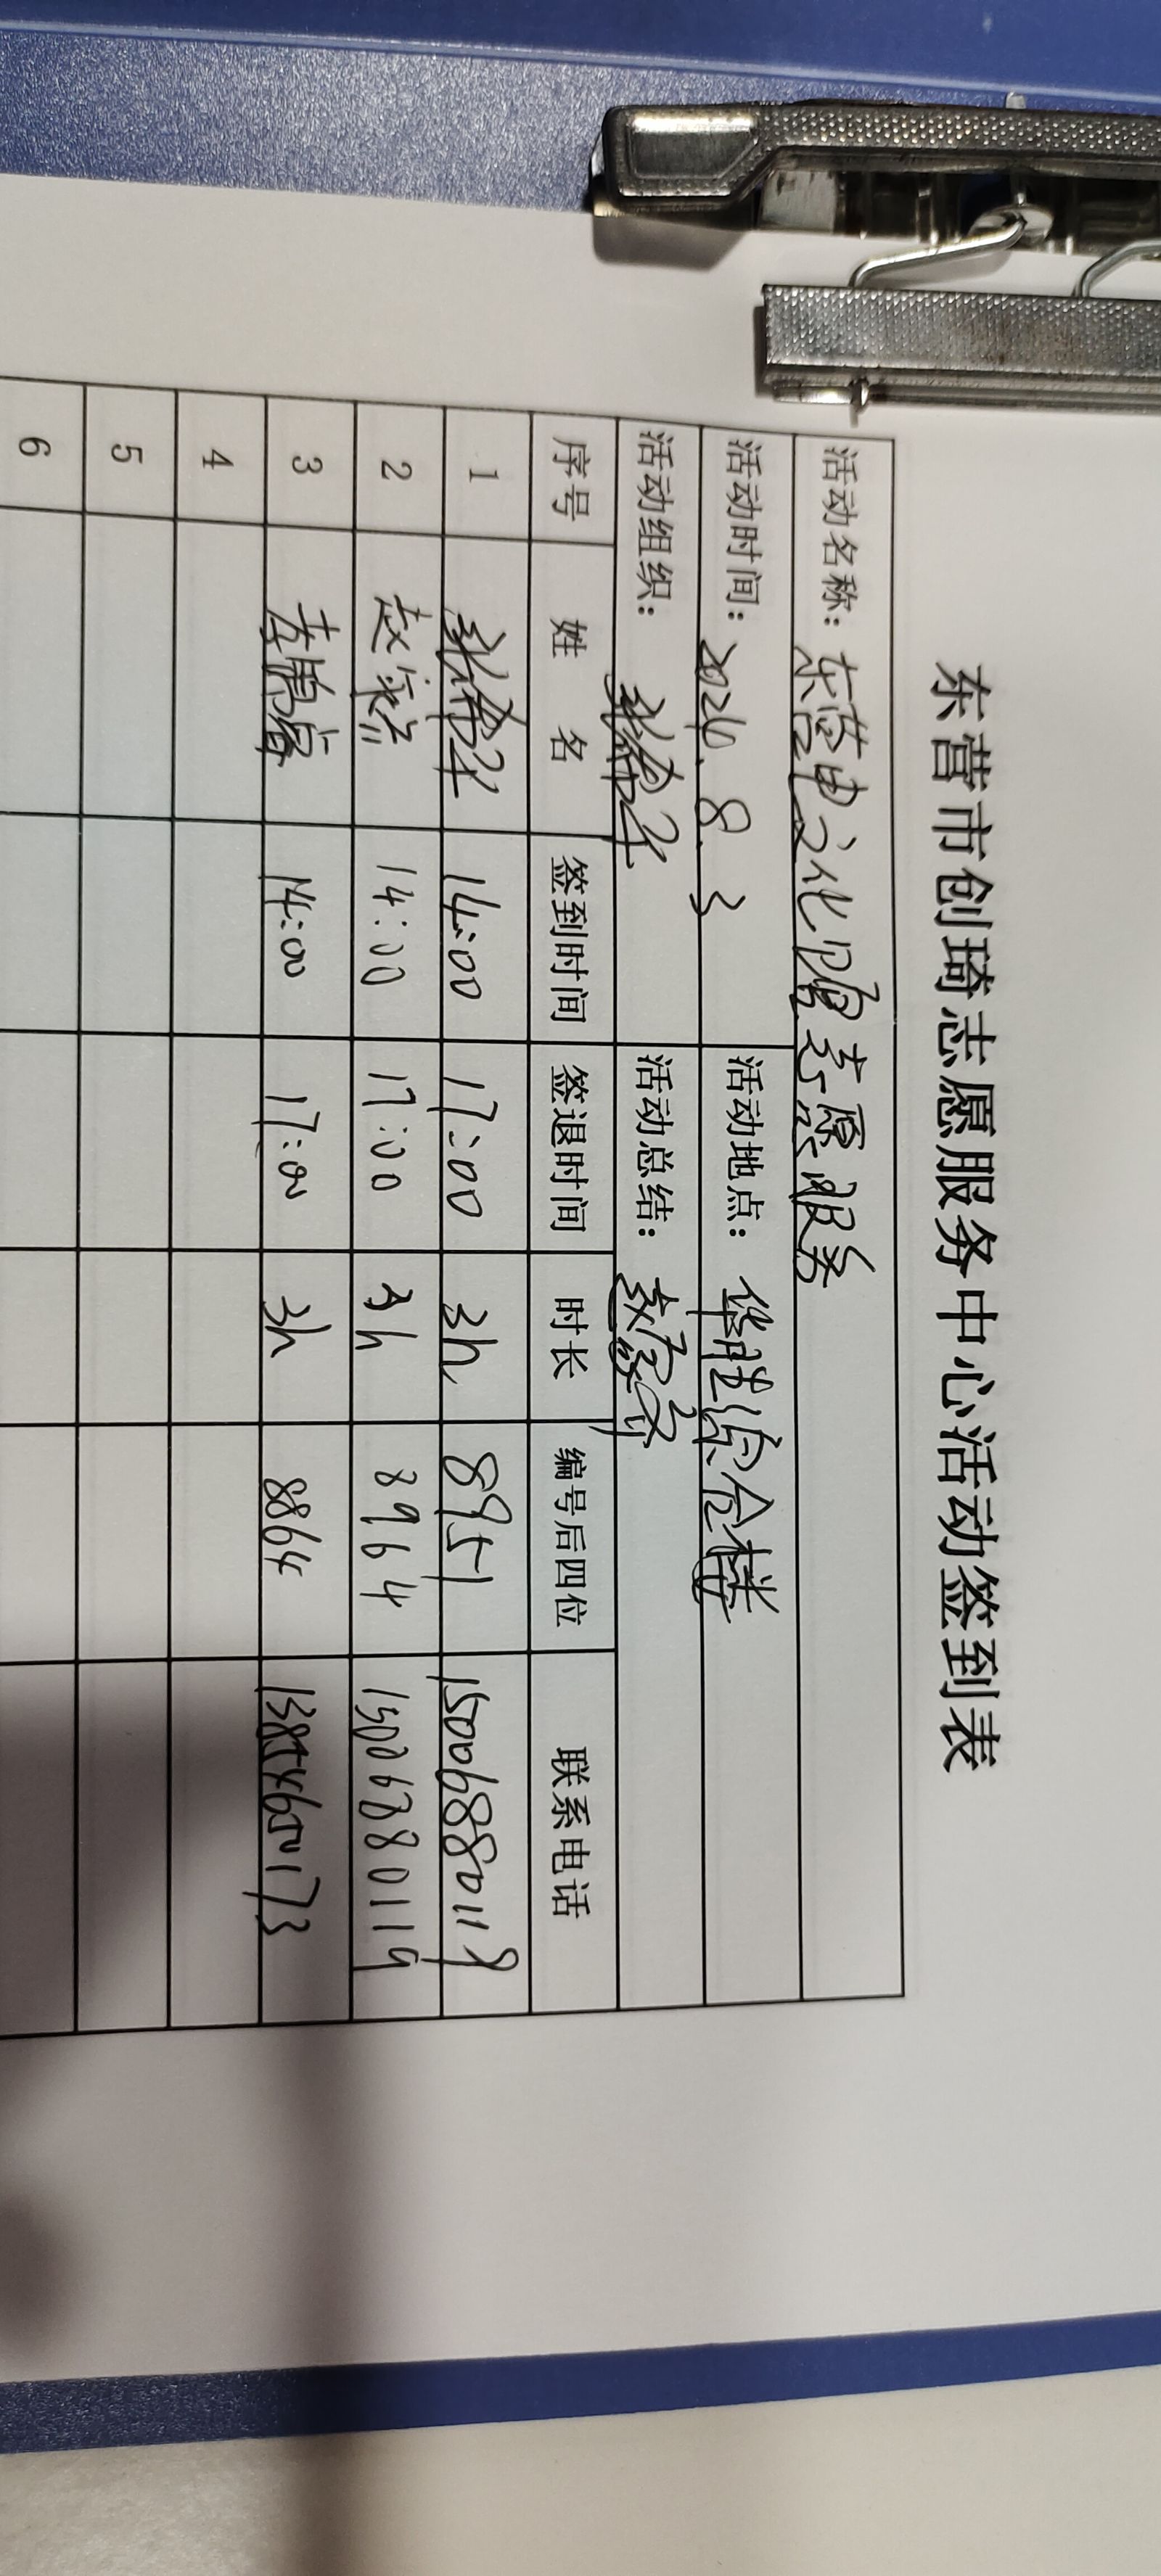 东营市创琦志愿服务中心活动签到表
活动名称：东营市文化馆志愿服务
活动时间：2024.8.3 活动地点：华胜综合楼
活动组织： 活动总结：
序号 姓名 签到时间 签退时间 时长 编号后四位 联系电话
1 14:00 17:00 3h 8951 15006880119
2 14:00 17:00 3h 8964 15006880119
3 14:00 17:00 3h 8864
4
5
6